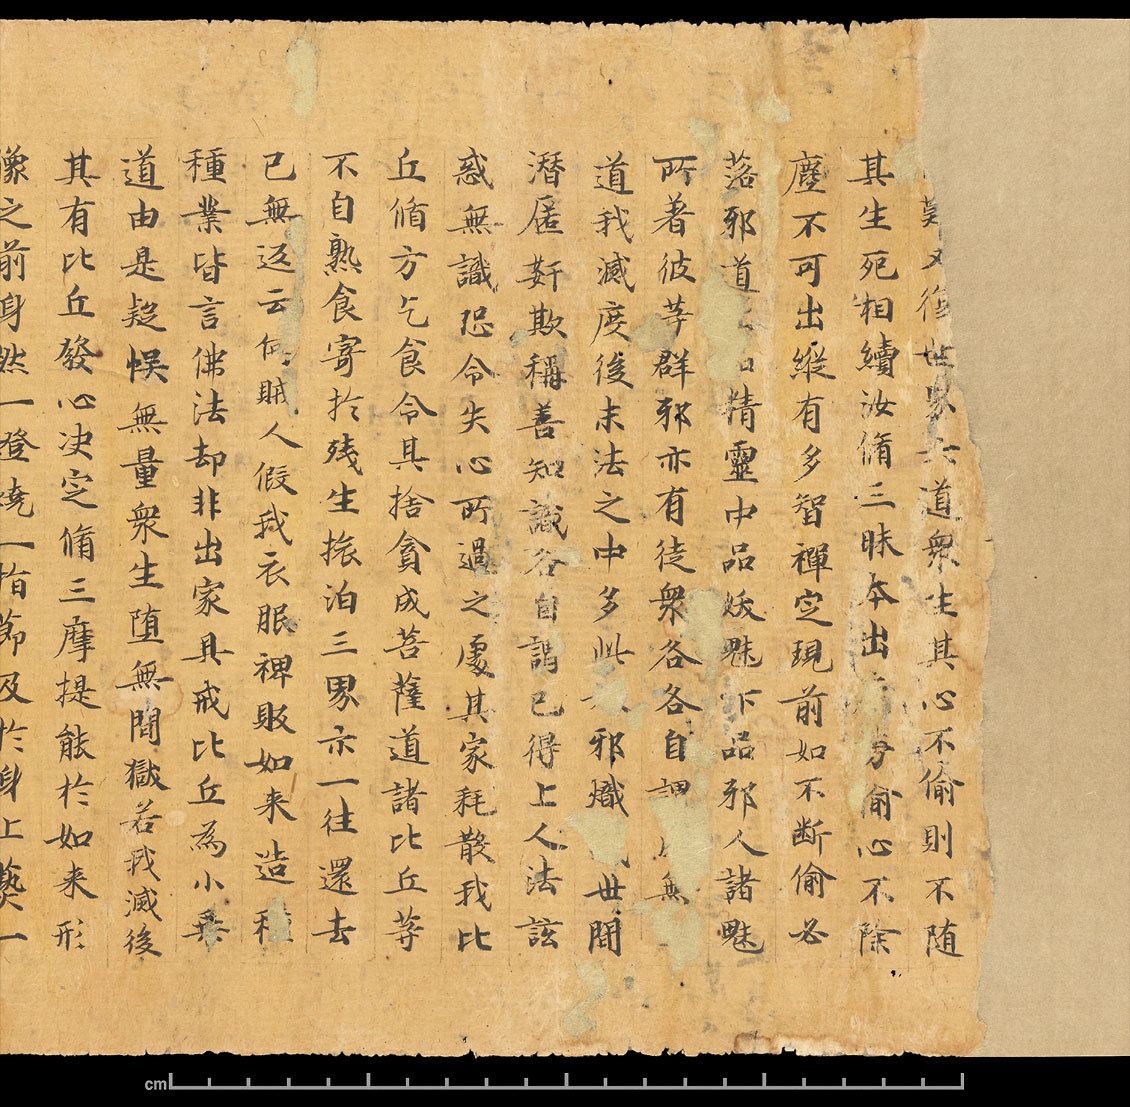 難又復世界六道衆生其心不偷則不随
其生死相續汝脩三昧本出勞偷心不除
塵不可出縱有多智禪定現前如不断偷必
落邪道品精靈中品妖魅下品邪人諸魅
所著彼等群邪亦有徒衆各各自謂無
道我滅度後末法之中多此邪熾世間
潛匿姧欺稱善知識各自謂已得上人法詃
惑無識恐令失心所過之處其家耗散我比
丘脩方乞食令其捨貪成菩薩道諸比丘等
不自熟食寄扵殘生旅泊三界示一往還去
已無返云何賊人假我衣服裨販如来造種
種業皆言佛法却非出家具戒比丘為小乗
道由是疑悮無量衆生堕無間獄若我滅後
其有比丘發心决定脩三摩提能扵如来形
像之前身然一燈燒一指節及扵身上爇一
cm